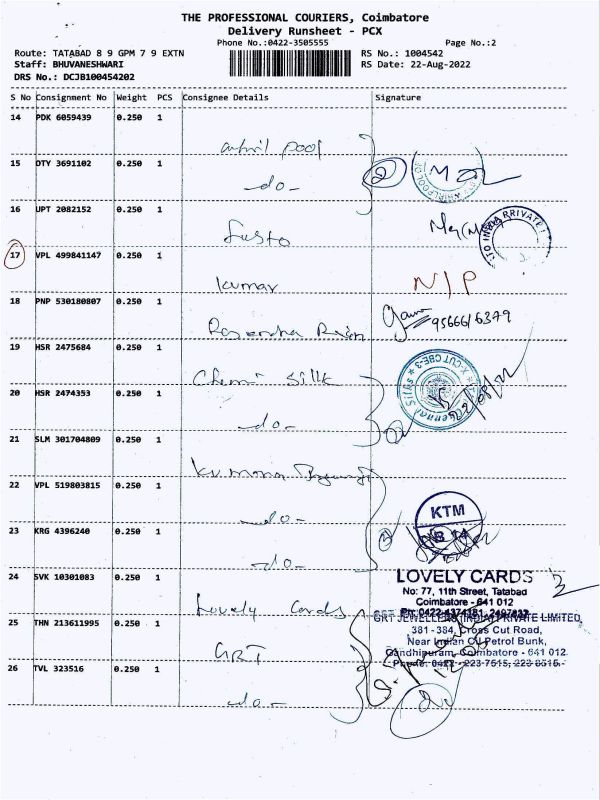 THE PROFESSIONAL COURIERS, Coimbatore
Delivery Runsheet - PCX
Phone No.:0422-3505555 Page No.:2
Route: TATABAD 8 9 GPM 7 9 EXTN RS No.: 1004542
Staff: BHUVANESHWARI RS Date: 22-Aug-2022
DRS No.: DCJB100454202
S No Consignment No Weight PCS Consignee Details Signature
14 PDK 6059439 0.250 1
15 OTY 3691102 0.250 1 -do-
2
16 UPT 2082152 0.250 1 Susto
17 VPL 499841147 0.250 1 Kumar N/P
18 PNP 530180807 0.250 1 Rajendra
19 HSR 2475684 0.250 1 Chennai Sillk
20 HSR 2474353 0.250 1 -do-
2
21 SLM 301704809 0.250 1 Kumaran
22 VPL 519803815 0.250 1 -do-
KTM
23 KRG 4396240 0.250 1 -do-
24 SVK 10301083 0.250 1 Lovely Cards
LOVELY CARDS
No: 77, 11th Street, Tatabad
Coimbatore - 641 012
25 THN 213611995 0.250 1 GRT
GRT JEWELLERS (INDIA) PRIVATE LIMITED,
381 - 384, Cross Cut Road,
Near Indian Oil Petrol Bunk,
Gandhipuram, Coimbatore - 641 012.
26 TVL 323516 0.250 1 -do-